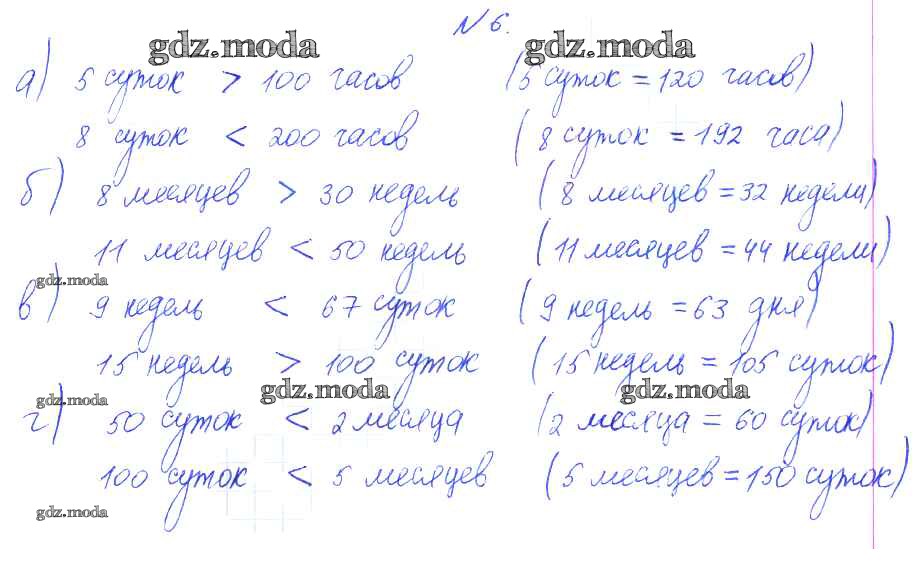 N 6.
gdz.moda gdz.moda
а) 5 суток > 100 часов (5 суток = 120 часов)
8 суток < 200 часов (8 суток = 192 часа)
б) 8 месяцев > 30 недель (8 месяцев = 32 недели)
11 месяцев < 50 недель (11 месяцев = 44 недели)
gdz.moda
в) 9 недель < 67 суток (9 недель = 63 дня)
15 недель > 100 суток (15 недель = 105 суток)
gdz.moda gdz.moda gdz.moda
г) 50 суток < 2 месяца (2 месяца = 60 суток)
100 суток < 5 месяцев (5 месяцев = 150 суток)
gdz.moda